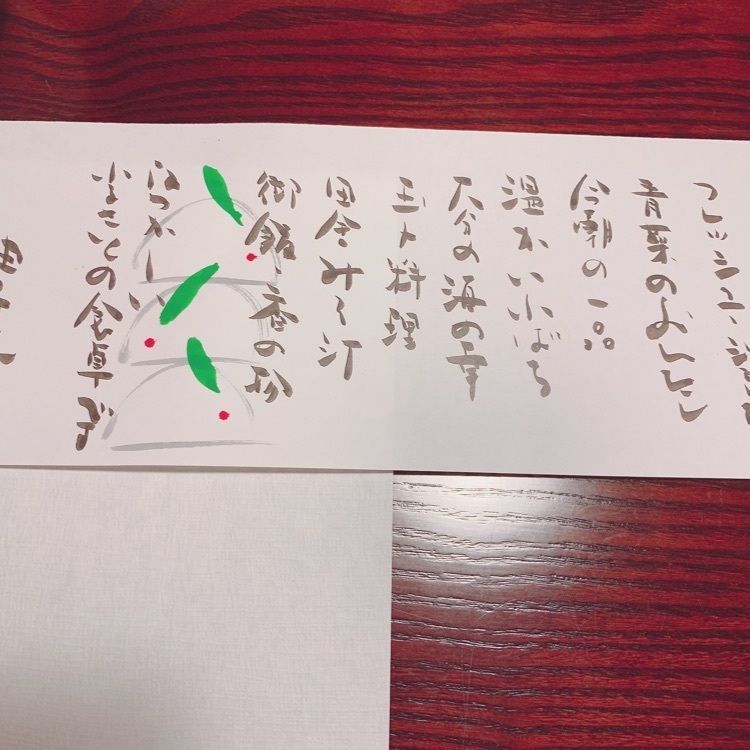 フレッシュ
青菜のおひたし
今朝の一品
温かい小ばち
大分の海の幸
玉子料理
田舎みそ汁
御飯・香の物
なつかしい
ふるさとの食卓